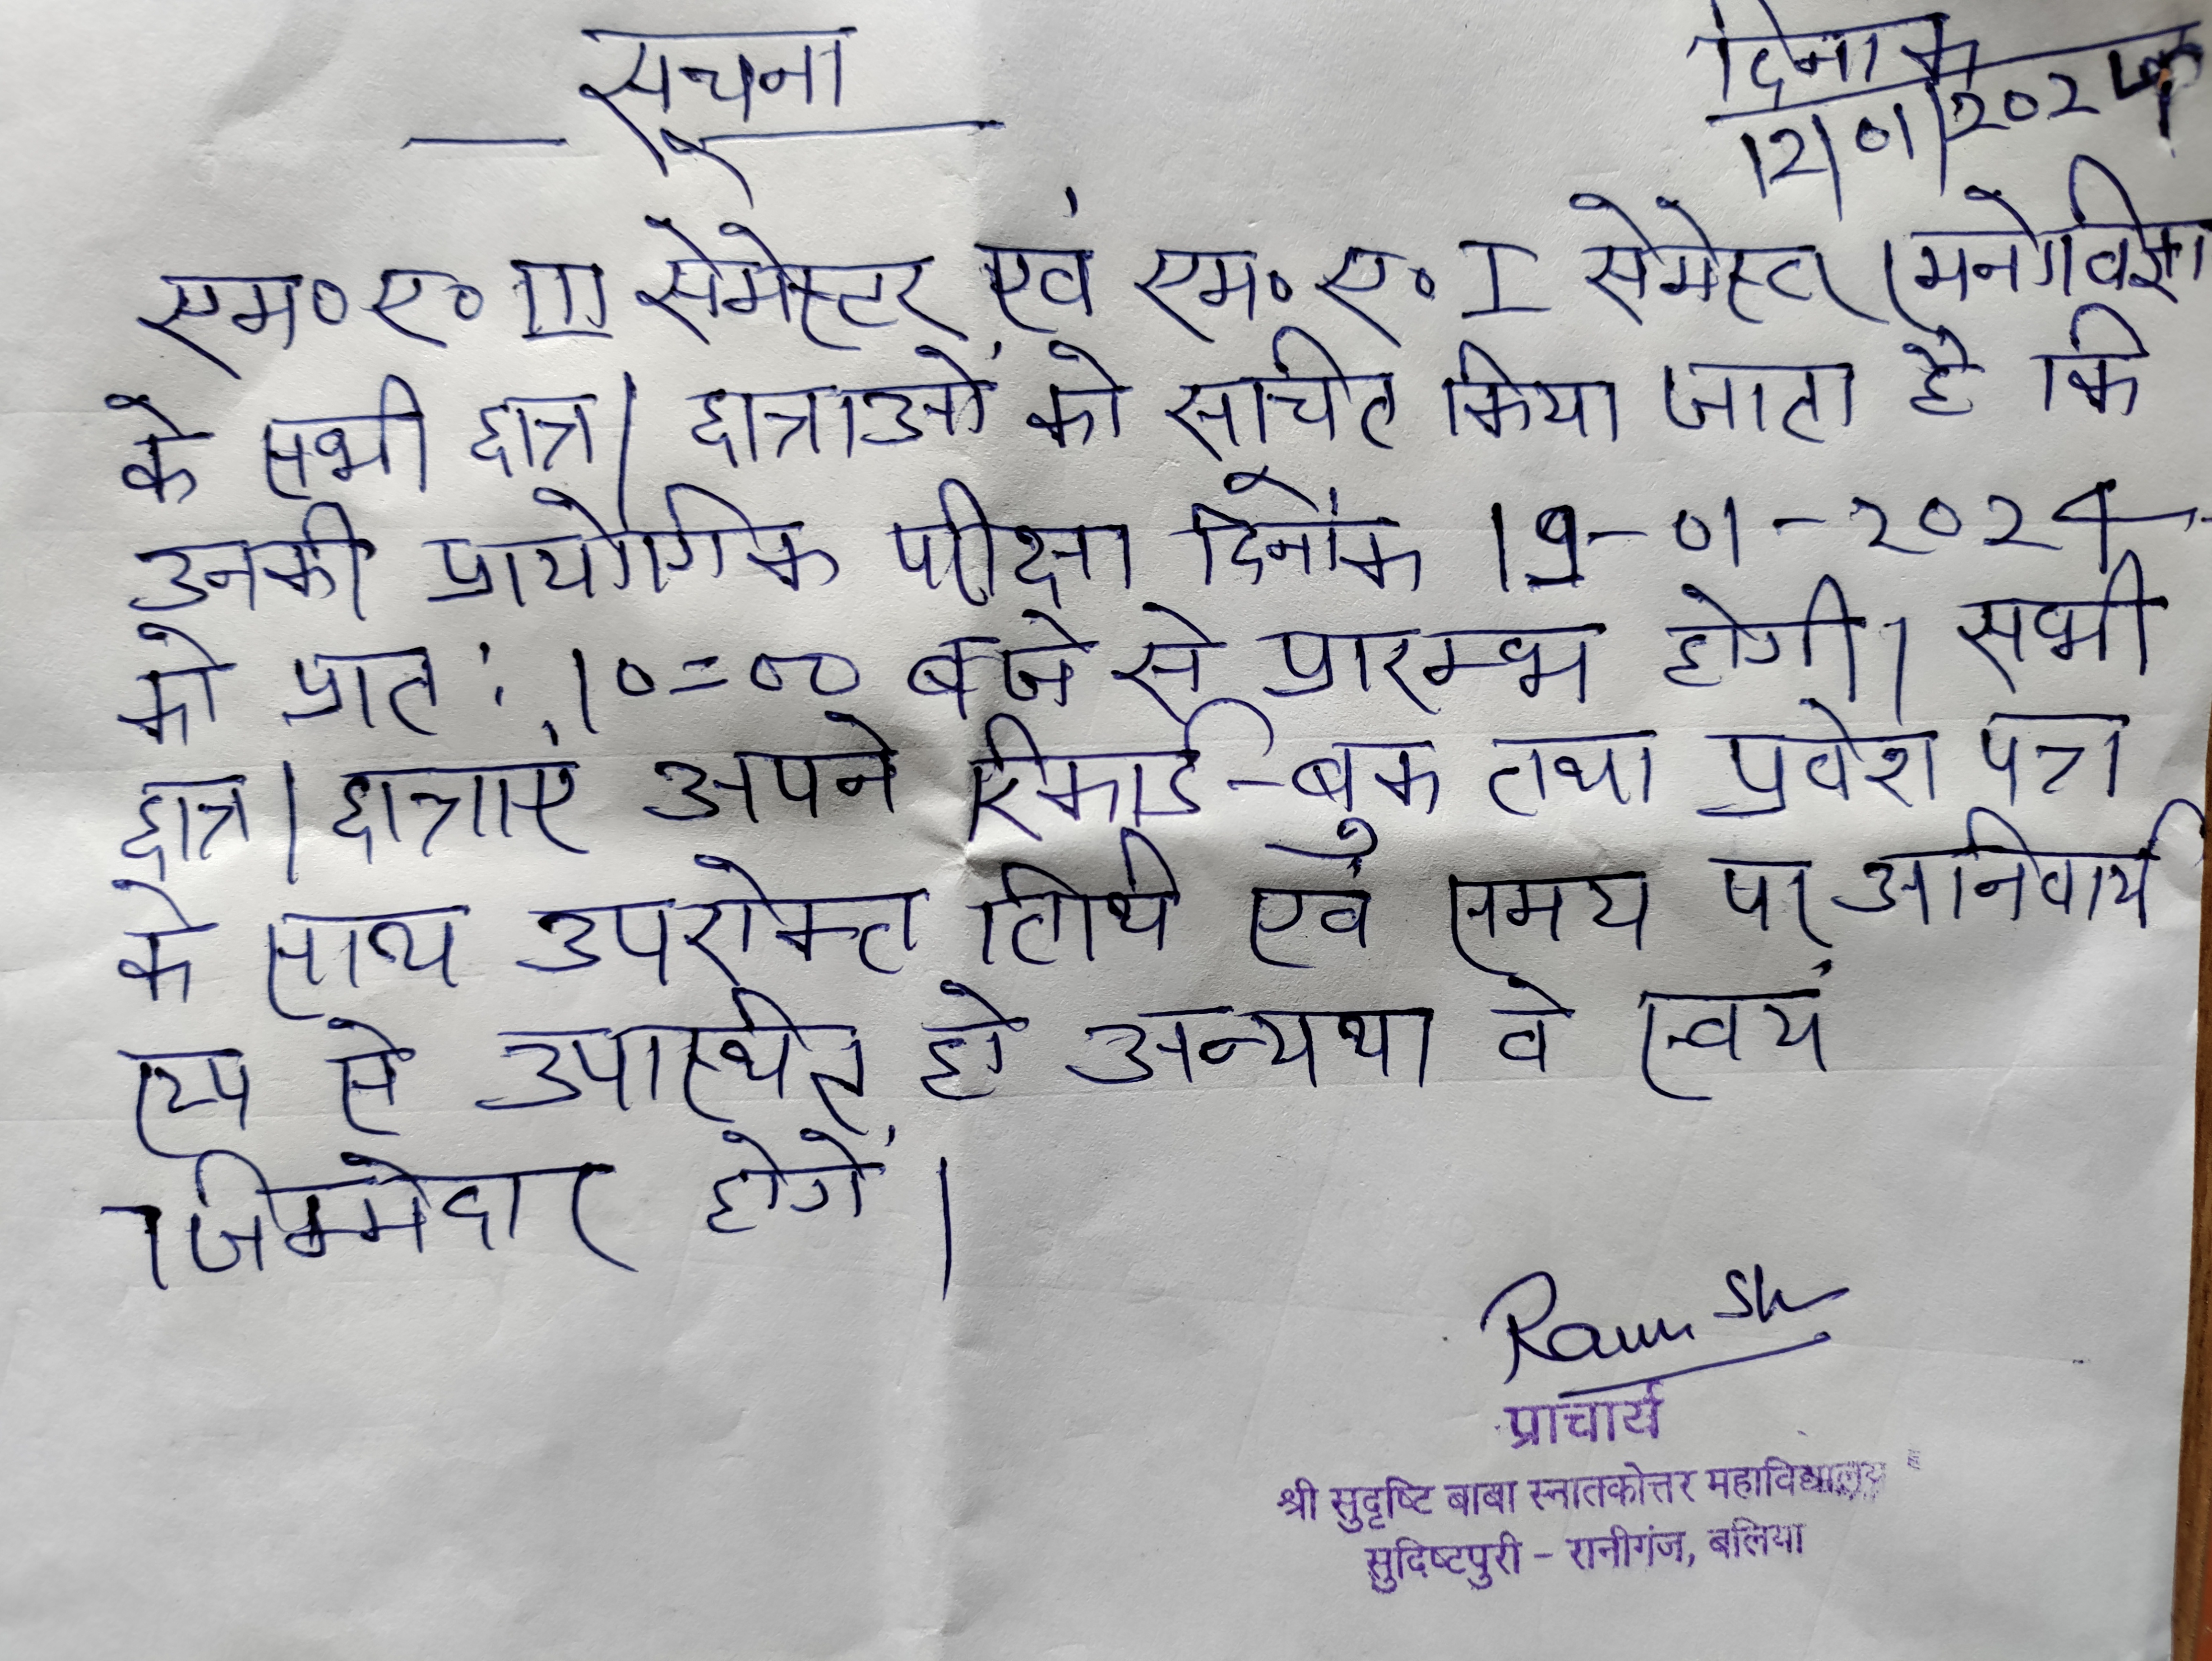 सूचना
दिनांक
12/01/2024
एम० ए० III सेमेस्टर एवं एम० ए० I सेमेस्टर (मनोविज्ञा
के सभी छात्र/छात्राओं को सूचित किया जाता है कि
उनकी प्रायोगिक परीक्षा दिनांक 19-01-2024
को प्रात: 10=00 बजे से प्रारम्भ होगी। सभी
छात्र/छात्राएं अपने रिकार्ड-बुक तथा प्रवेश पत्र
के साथ उपरोक्त तिथि एवं समय पर अनिवार्य
रूप से उपस्थित हो अन्यथा वे स्वयं
जिम्मेदार होगें।
प्राचार्य
श्री सुदृष्टि बाबा स्नातकोत्तर महाविद्यालय
सुदिष्टपुरी - रानीगंज, बलिया